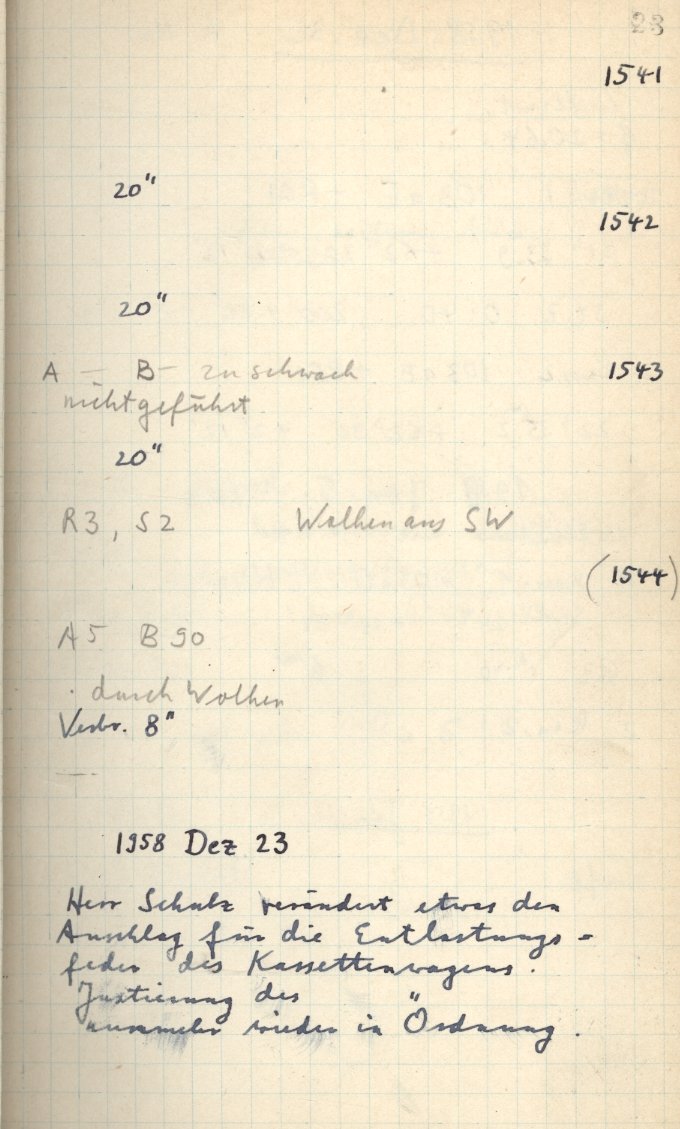 23
1541
20"
1542
20"
A – B – zu schwach 1543
nicht geführt
20"
R3, S2 Wolken aus SW
(1544)
A5 B90
durch Wolken
Verbr. 8"
1958 Dez 23
Herr Schulz verändert etwas den
Anschlag für die Entlastungs-
feder des Kassettenwagens.
Justierung des
nunmehr wieder in Ordnung.